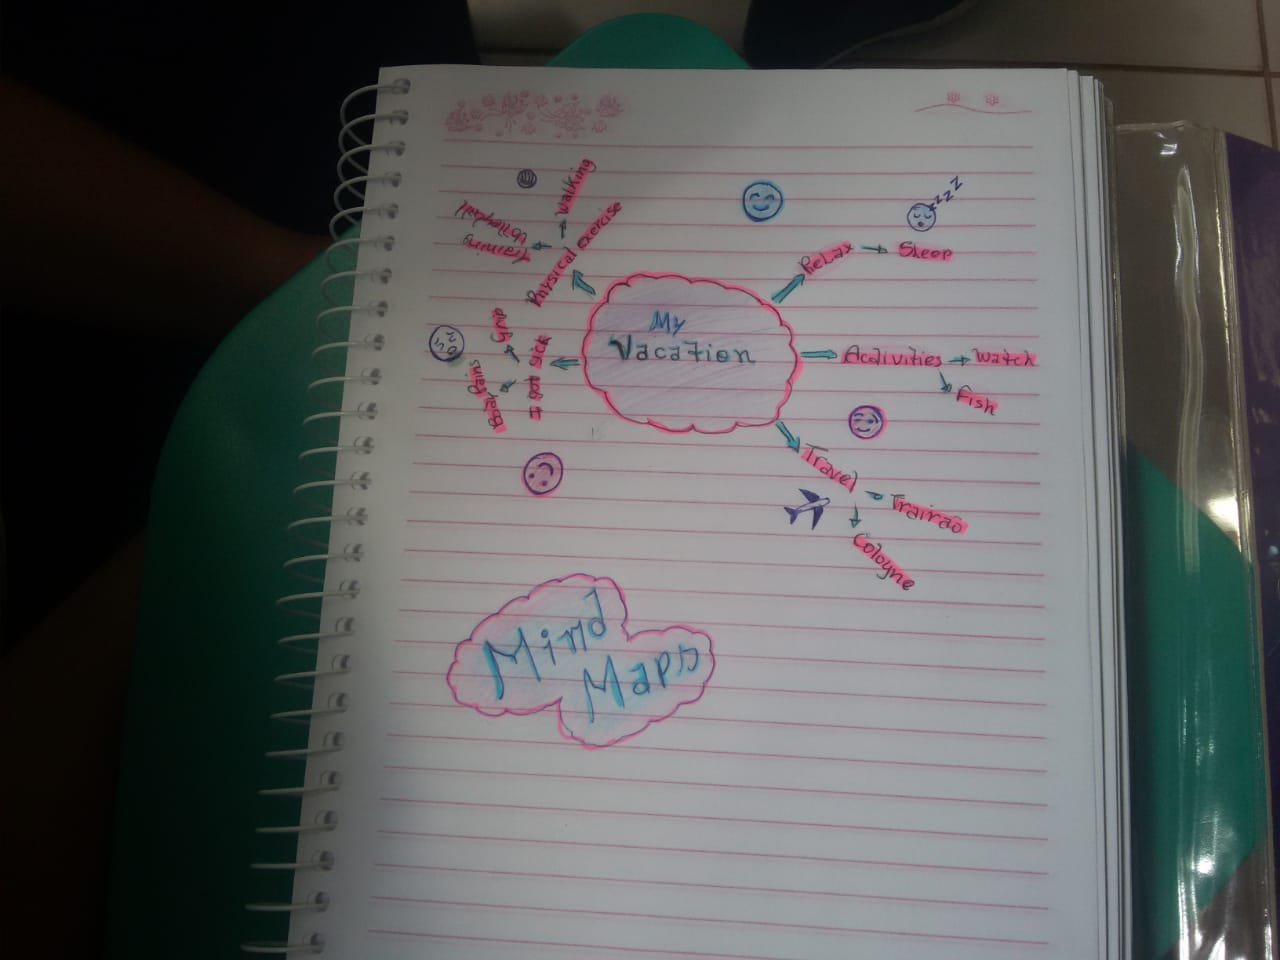 My
Vacation
Physical exercise
Walking
Training
volleyball
Relax
Sleep
zzzz
Activities
Watch
Fish
Travel
Trairão
Cologne
I got sick
Body Pains
Mind
Maps